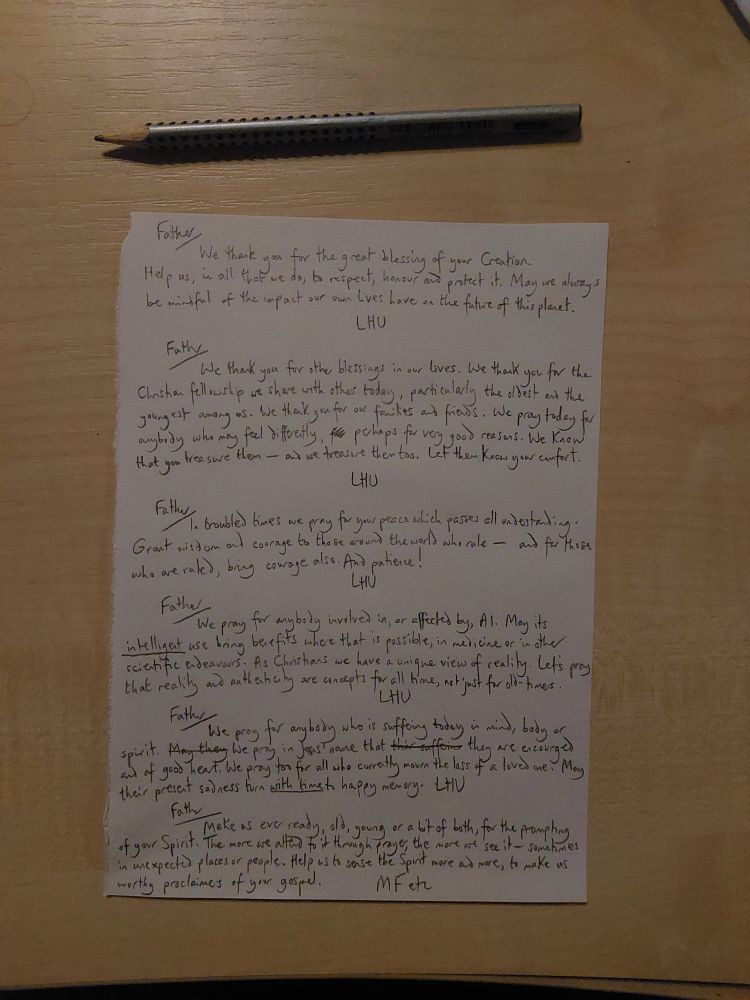 Father
We thank you for the great blessing of your Creation.
Help us, in all that we do, to respect, honour and protect it. May we always
be mindful of the impact our own lives have on the future of this planet.
LHU
Father
We thank you for other blessings in our lives. We thank you for the
Christian fellowship we share with others today, particularly the oldest and the
youngest among us. We thank you for our families and friends. We pray today for
anybody who may feel differently, perhaps for very good reasons. We know
that you treasure them — and we treasure them too. Let them know your comfort.
LHU
Father
In troubled times we pray for your peace which passes all understanding.
Grant wisdom and courage to those around the world who rule — and for those
who are ruled, bring courage also. And patience!
LHU
Father
We pray for anybody involved in, or affected by, AI. May its
intelligent use bring benefits where that is possible, in medicine or in other
scientific endeavours. As Christians we have a unique view of reality. Let's pray
that reality and authenticity are concepts for all time, not just for old-timers.
LHU
Father
We pray for anybody who is suffering today in mind, body or
spirit. May they We pray in Jesus' name that their suffering they are encouraged
and of good heart. We pray too for all who currently mourn the loss of a loved one. May
their present sadness turn with time to happy memory. LHU
Father
Make us ever ready, old, young or a bit of both, for the prompting
of your Spirit. The more we attend to it through prayer, the more we see it — sometimes
in unexpected places or people. Help us to sense the Spirit more and more, to make us
worthy proclaimers of your gospel. MF etc